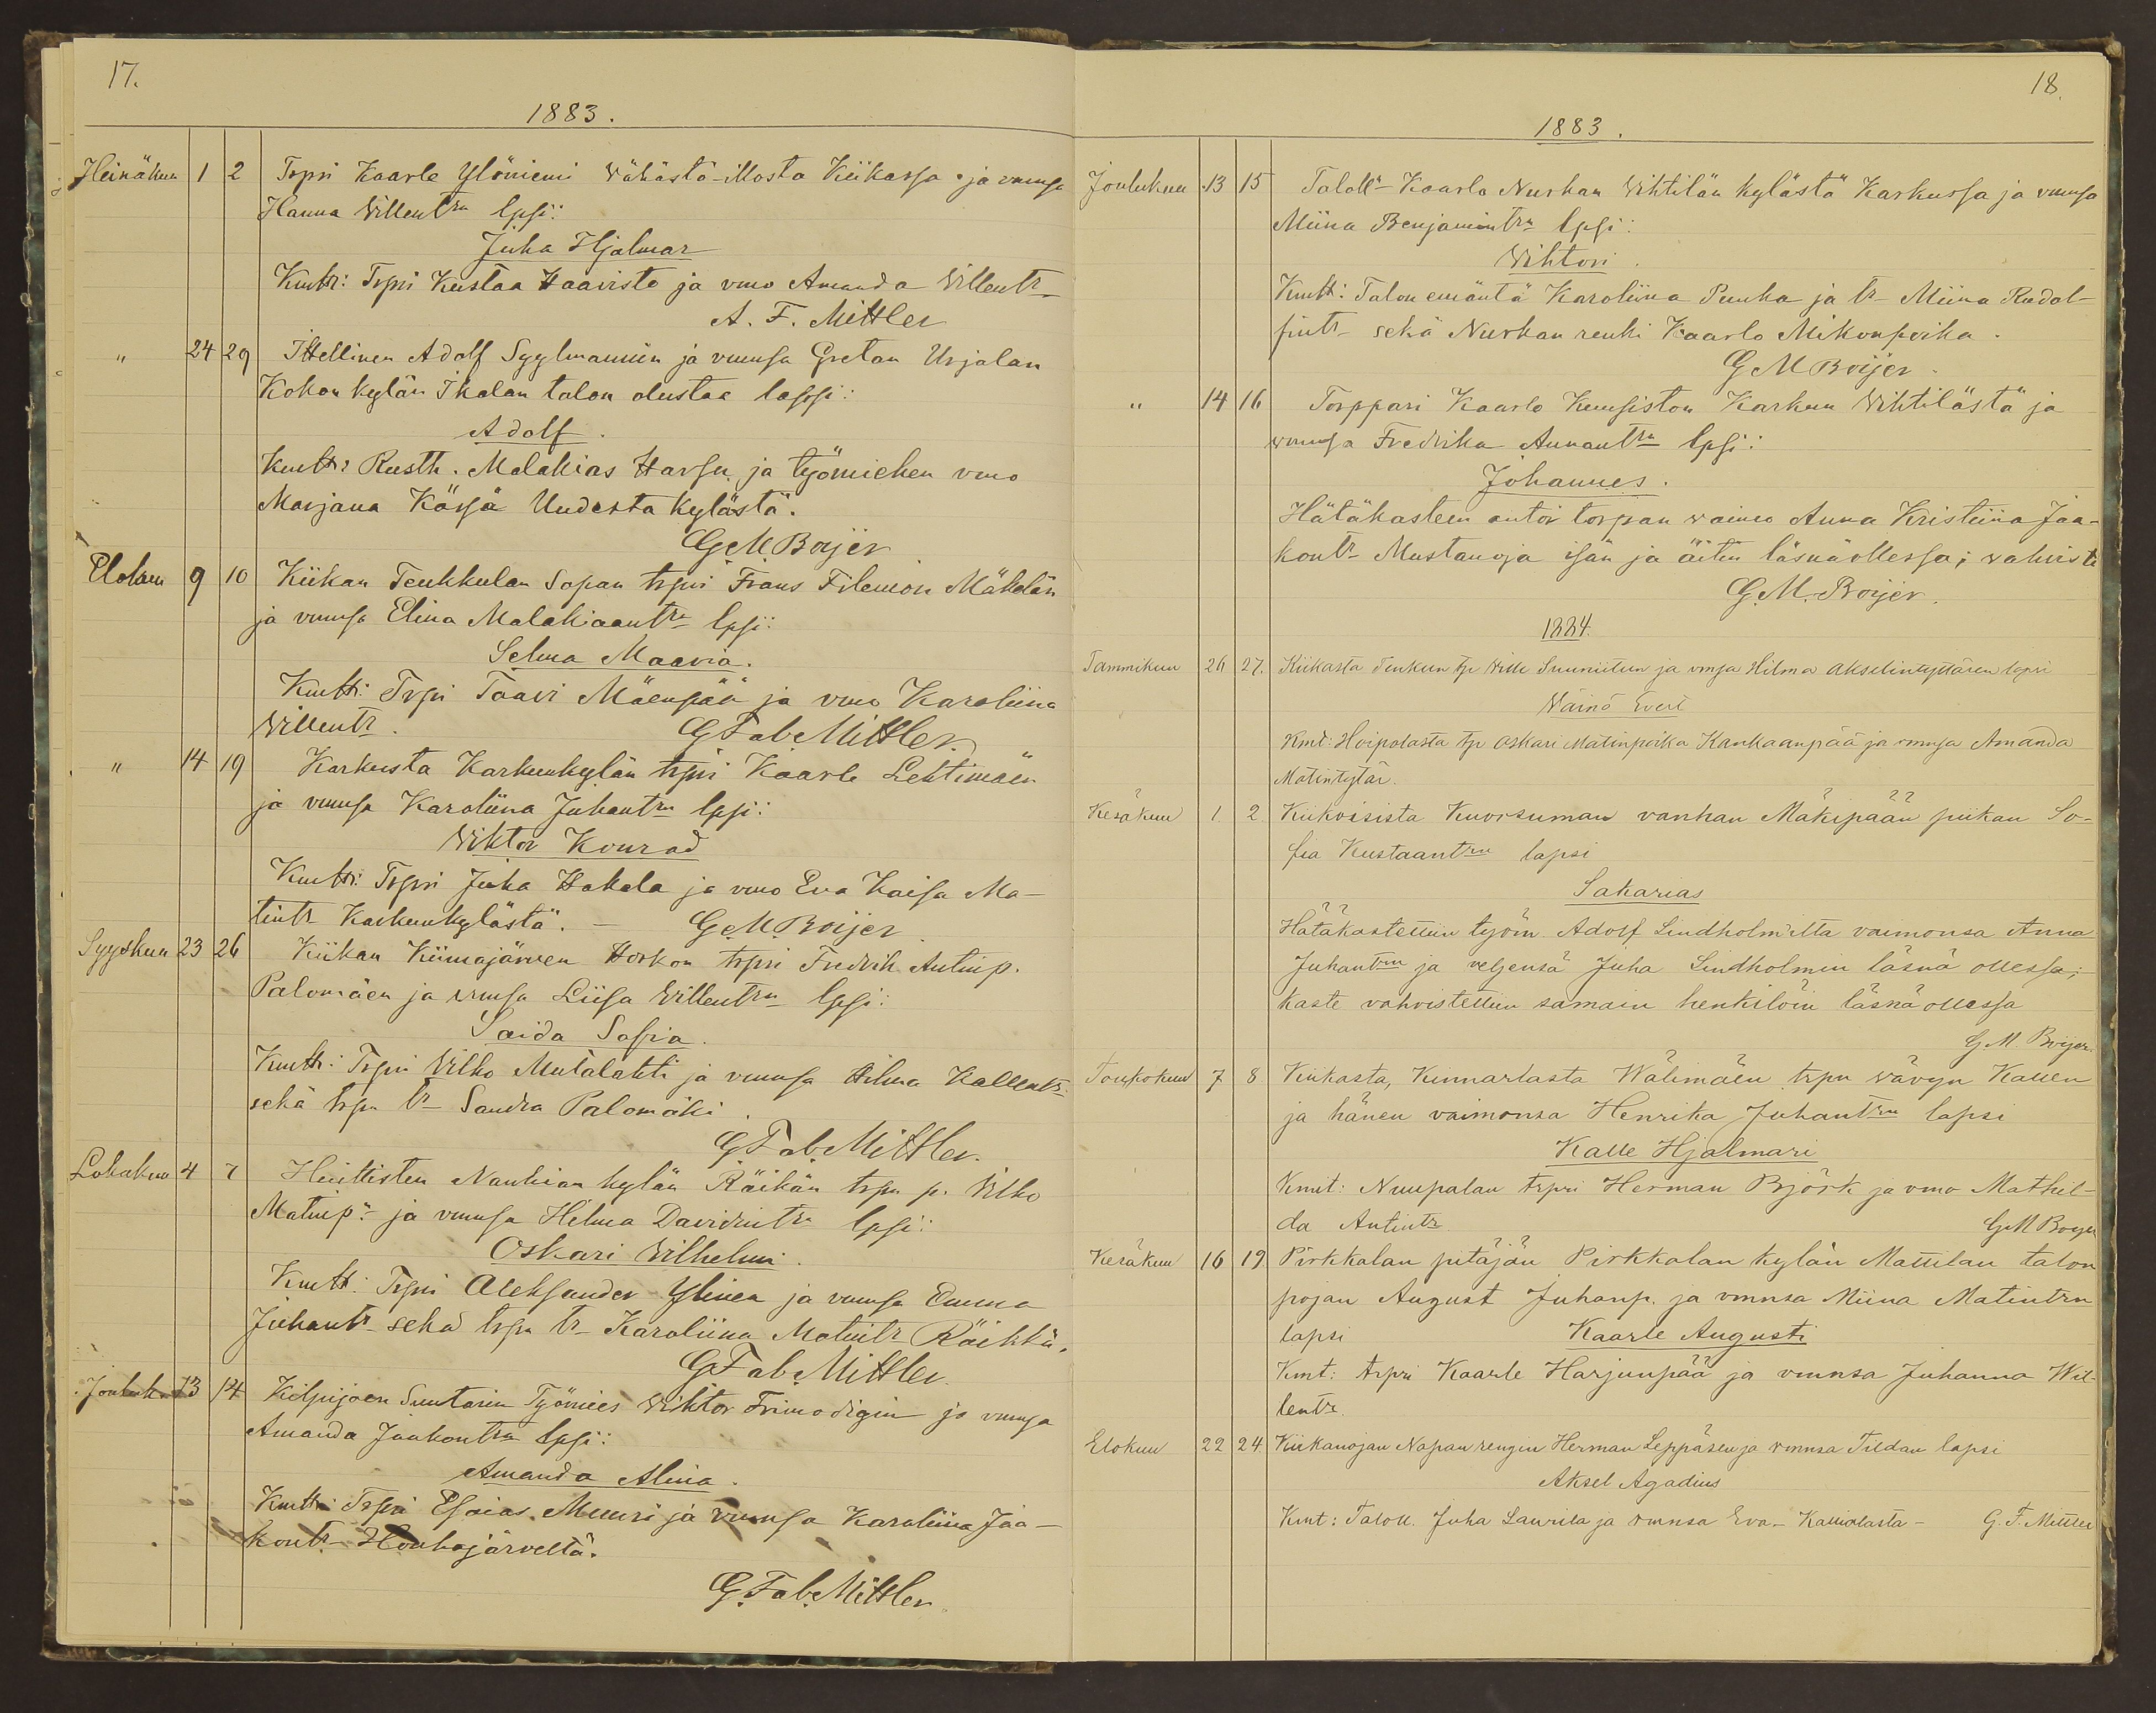 17.
1883.
Heinäkuu 1 2 Trpri Kaarle Ylöniemi Wähästä-Mosta Kiikassa ja vmnsa
Hanna Willentrn lpsi:
Juha Hjalmar
Kmtt: Trpri Kustaa Haavisto ja vmo Amanda Willentr
A. F. Mittler
" 24 29 Itellinen Adolf Syylmannin ja vmnsa Gretan Urjalan
Kokon kylän Ikalan talon alustaa lapsi:
Adolf.
Kmtt: Rusth. Malakias Harsu ja työmiehen vmo
Marjana Körsä Uudesta kylästä.
G M Boijer
Elokuu 9 10 Kiikan Teukkulan Sapan trpri Frans Filemon Mäkelän
ja vmnsa Elina Malakiaantrn lpsi:
Selma Maaria.
Kmtt: Trpri Taavi Mäenpää ja vmo Karoliina
Willentr. G Fab Mittler.
" 14 19 Karkusta Karkunkylän trpri Kaarle Lehtimäen
ja vmnsa Karoliina Juhantrn lpsi:
Wiktor Konrad
Kmtt: Trpri Juha Hakala ja vmo Eva Kaisa Ma-
tintr Karkunkylästä. — G. M. Boijer
Syyskuu 23 26 Kiikan Kiimajärven Horkon trpri Fredrik Antinp.
Palomäen ja vmnsa Liisa Willentrn lpsi:
Saida Sofia.
Kmtt: Trpri Vilho Mutalahti ja vmnsa Hilma Kallentr
sekä trpn tr Sandra Palomäki.
G. Fab. Mittler.
Lokakuu 4 7 Huittisten Nanhian kylän Räikän trpn p. Vilho
Matinp. ja vmnsa Helma Davidintrn lpsi:
Oskari Vilhelmi.
Kmtt: Trpri Aleksander Ylinen ja vmnsa Emma
Juhantr sekä trpn tr Karoliina Matintr Räikkä.
G. Fab. Mittler.
Joulukuu 13 14 Kilpijoen Suutarin Työmies Viktor Frimodigin ja vmnsa
Amanda Jaakontrn lpsi:
Amanda Alina.
Kmtt: Trpri Esaias Muuri ja vmnsa Karoliina Jaa-
kontr Houhajärveltä.
G. Fab. Mittler.
18.
1883.
Joulukuu 13 15 Talok Kaarlo Nurhan Vihtilän kylästä Karkussa ja vmnsa
Miina Benjamintrn lpsi:
Vihtori.
Kmtt: Talon emäntä Karoliina Punha ja tr Miina Rudol-
fintr sekä Nurhan renki Kaarlo Mikonpoika.
G M Boijer.
" 14 16 Torppari Kaarlo Kuusiston Karkun Vihtilästä ja
vmnsa Fredrika Annantrn lpsi:
Johannes.
Hätäkasteen antoi torpan waimo Anna Kristiina Jaa-
kontr Mustanoja isän ja äitin läsnäollessa; wahvisti
G. M. Boijer.
1884.
Tammikuu 26 27. Kiikasta Teukun tp Wille Suuniitun ja vmnsa Hilma Akselintyttären lapsi
Wäinö Evert
Kmt: Hoipolasta tp Oskari Matinpoika Kankaanpää ja vmnsa Amanda
Matintytär.
Kesäkuu 1 2 Kiikoisista Kuorsuman vanhan Mäkipään piikan So-
fia Kustaantrn lapsi
Sakarias
Hätäkastettiin työm. Adolf Lindholm'ilta vaimonsa Anna
Juhantrn ja veljensä Juha Lindholmin läsnä ollessa;
kaste vahvistettiin samain henkilöin läsnä ollessa
G. M. Boijer.
Toukokuu 7 8 Kiikasta, Kinnarlasta Wälimäen trpn vävyn Kallen
ja hänen vaimonsa Henrika Juhantrn lapsi
Kalle Hjalmari
Kmt: Nuupalan trpri Herman Björk ja vmo Mathil-
da Antintr. G M Boijer
Kesäkuu 16 19 Pirkkalan pitäjän Pirkkalan kylän Mattilan talon
pojan August Juhanp. ja vmnsa Miina Matintrn
lapsi Kaarle Augusti
Kmt: trpri Kaarle Harjunpää ja vmnsa Juhanna Wil-
lentr.
Elokuu 22 24 Kiikanojan Napan rengin Herman Leppäsen ja vmnsa Tildan lapsi
Aksel Agadius
Kmt: Taloll. Juha Laurila ja vmnsa Eva - Kalliolasta - G. F. Mittler